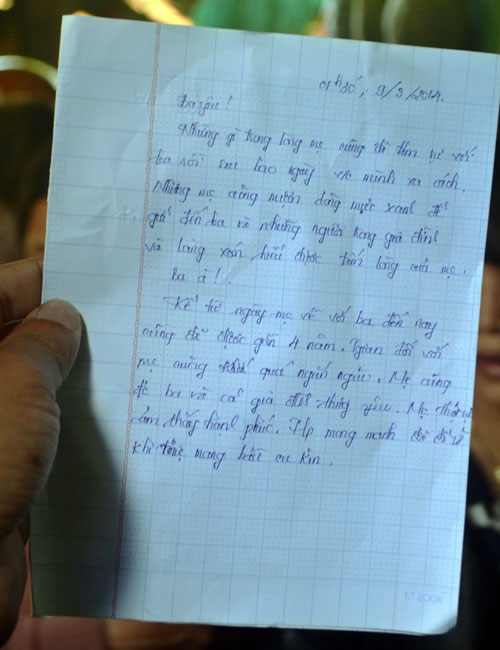 01h30', 9/3/2014.
Ba yêu!
Những gì trong lòng mẹ cũng đã tâm sự với
ba rồi sau bao ngày vc mình xa cách.
Nhưng mẹ cũng muốn dùng mực xanh để
gửi đến ba và những người trong gia đình
và làng xóm hiểu được tấm lòng của mẹ.
Ba à!
Kể từ ngày mẹ về với ba đến nay
cũng đã được gần 4 năm. đối với
mẹ cũng quá ngắn ngủi. Mẹ cũng
đc ba và cả gia đình thương yêu. Mẹ
cảm thấy hạnh phúc. Hp mong manh
khi mẹ mang bầu cu kin.
T.T BOOK